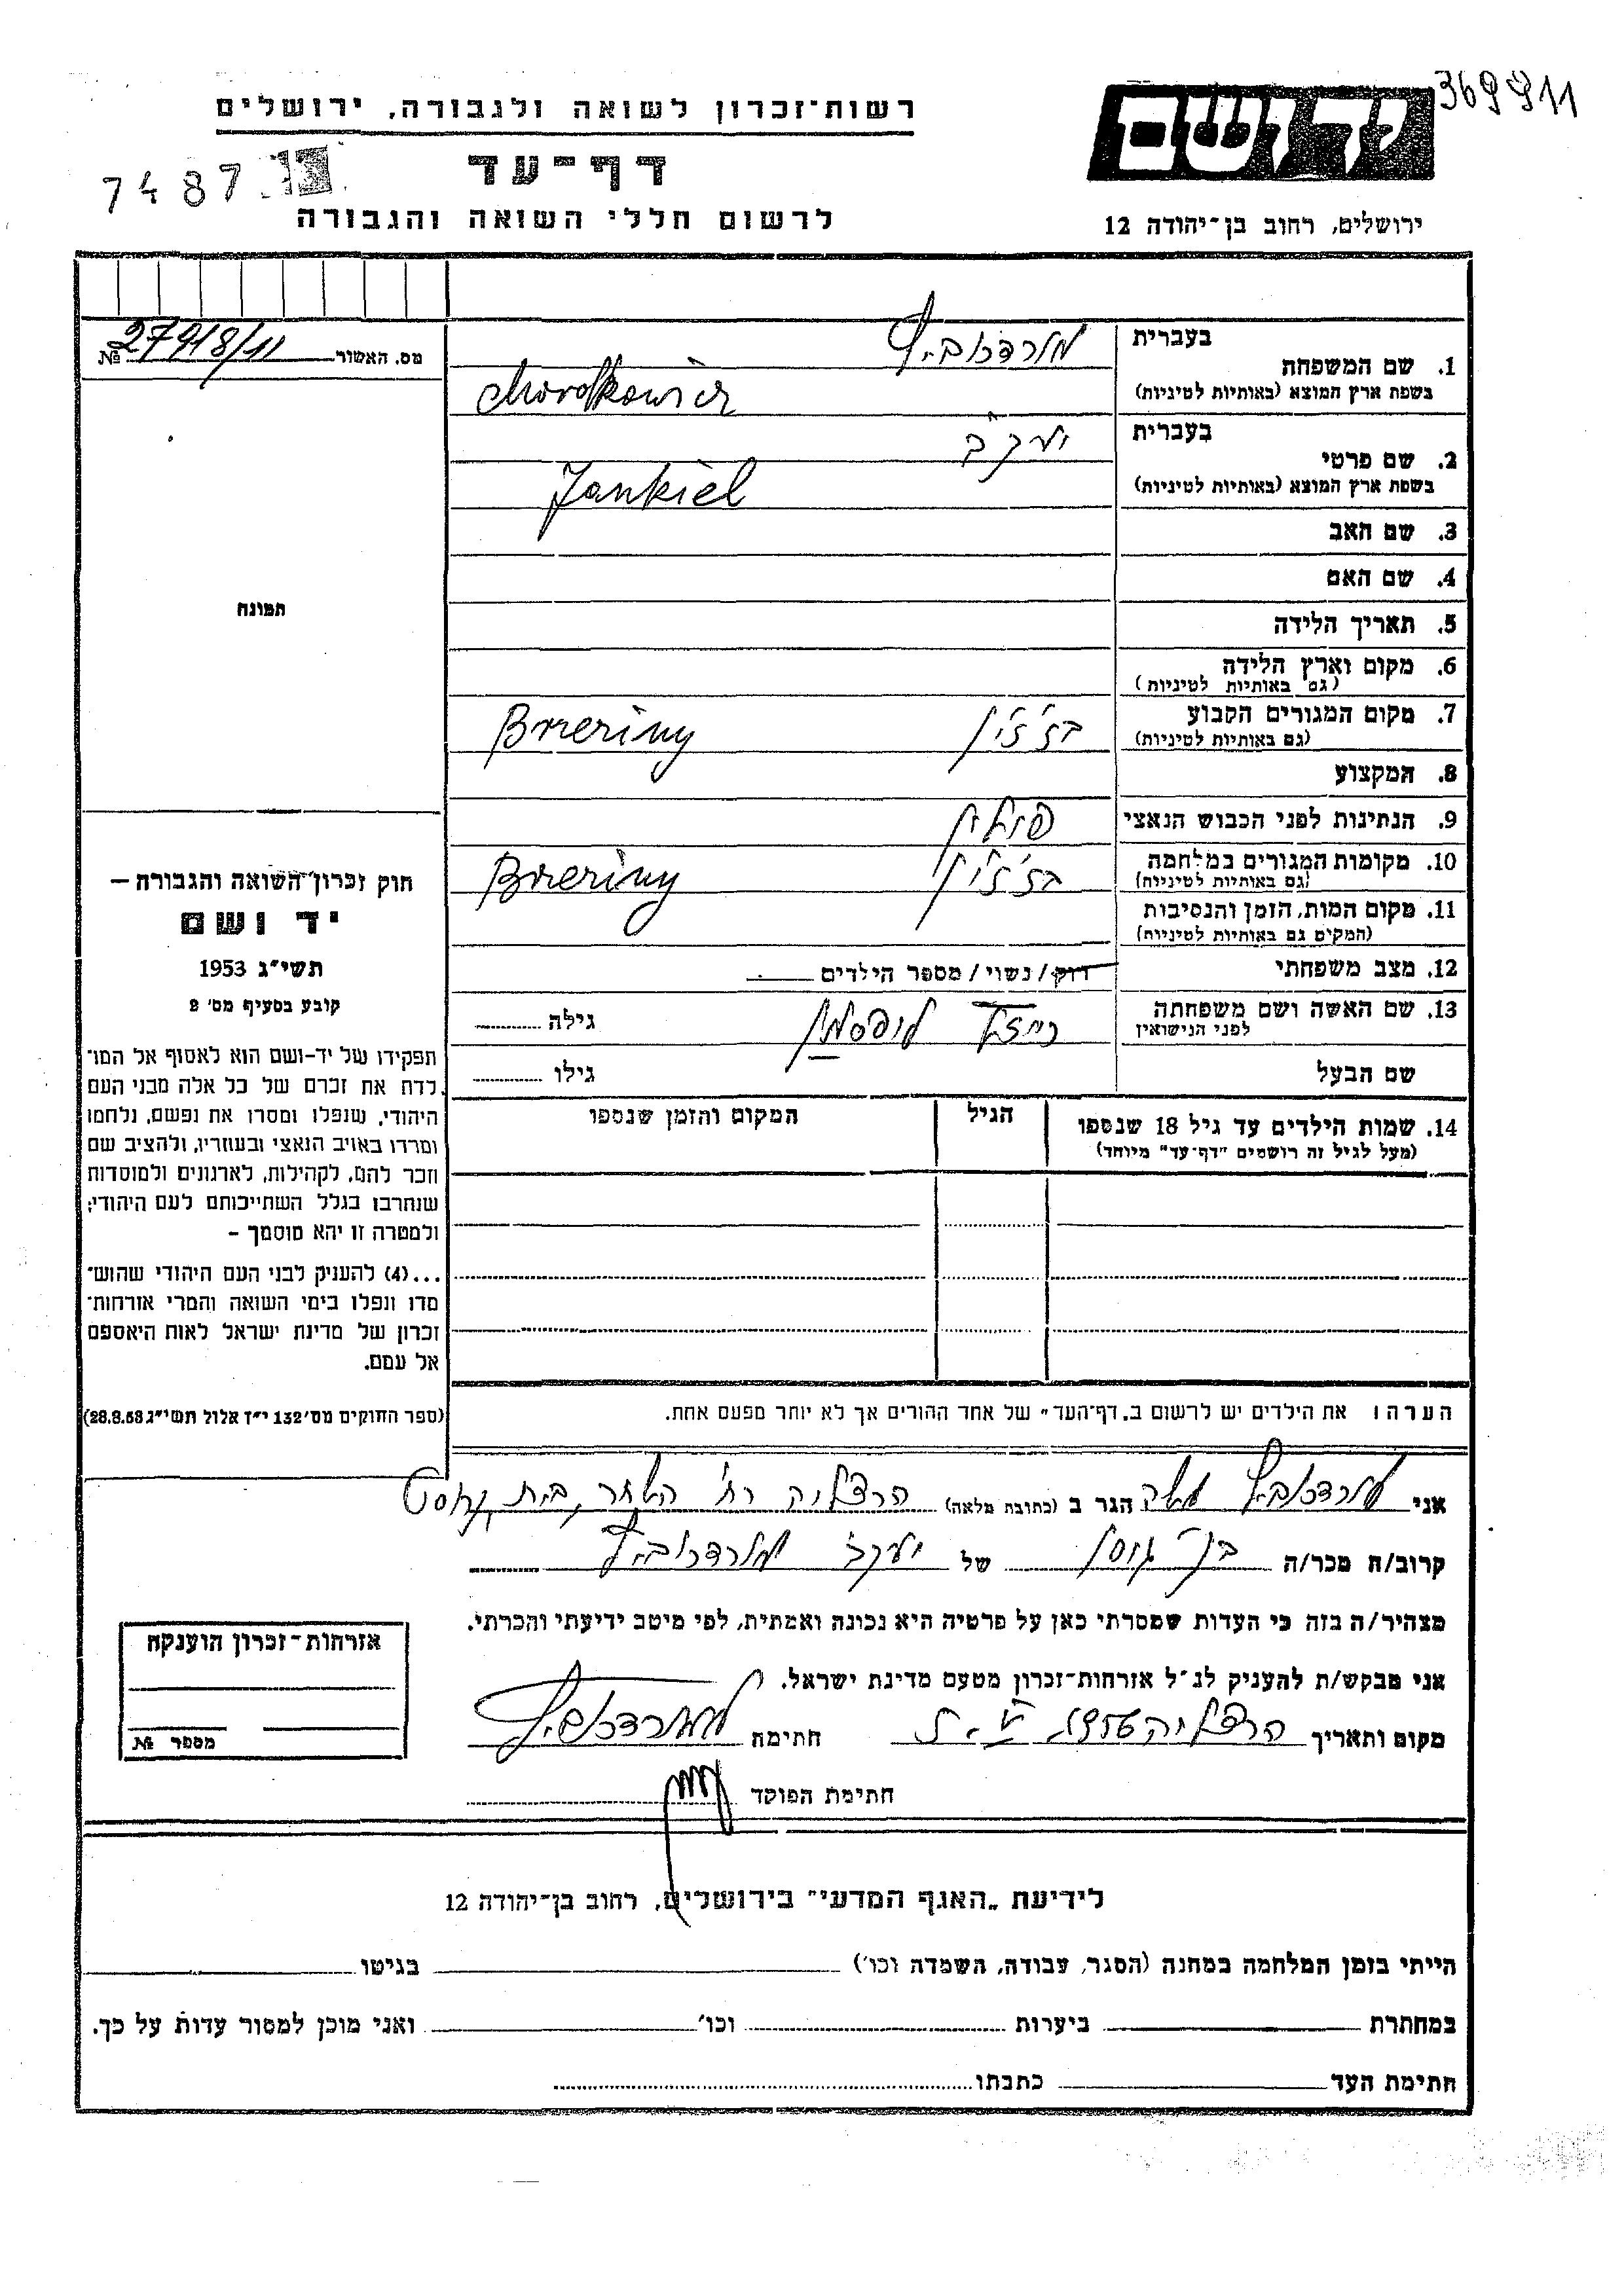 369911
רשות־זכרון לשואה ולגבורה, ירושלים
דף־עד
7487
לרשום חללי השואה והגבורה
ירושלים, רחוב בן־יהודה 12
מס. האשור № 27918/11
בעברית
1. שם המשפחה
בשפת ארץ המוצא (באותיות לטיניות)
בעברית יעקב
2. שם פרטי
בשפת ארץ המוצא (באותיות לטיניות) Jankiel
3. שם האב
4. שם האם
5. תאריך הלידה
6. מקום וארץ הלידה
(גם באותיות לטיניות)
7. מקום המגורים הקבוע Brzeziny
(גם באותיות לטיניות)
8. המקצוע
9. הנתינות לפני הכבוש הנאצי פולין
10. מקומות המגורים במלחמה Brzeziny
(גם באותיות לטיניות)
11. מקום המות, הזמן והנסיבות
(המקום גם באותיות לטיניות)
12. מצב משפחתי רווק/נשוי/ מספר הילדים
13. שם האשה ושם משפחתה גילה
לפני הנישואין
שם הבעל גילו
14. שמות הילדים עד גיל 18 שנספו הגיל המקום והזמן שנספו
(מעל לגיל זה רושמים "דף־עד" מיוחד)
הערה: את הילדים יש לרשום ב„דף־העד" של אחד ההורים אך לא יותר מפעם אחת.
תמונה
חוק זכרון השואה והגבורה —
יד ושם
תשי"ג 1953
קובע בסעיף מס' 2
תפקידו של יד־ושם הוא לאסוף אל המו־
לדת את זכרם של כל אלה מבני העם
היהודי, שנפלו ומסרו את נפשם, נלחמו
ומרדו באויב הנאצי ובעוזריו, ולהציב שם
וזכר להם, לקהילות, לארגונים ולמוסדות
שנחרבו בגלל השתייכותם לעם היהודי;
ולמטרה זו יהא מוסמך –
...(4) להעניק לבני העם היהודי שהוש־
מדו ונפלו בימי השואה והמרי אזרחות־
זכרון של מדינת ישראל לאות היאספם
אל עמם.
(ספר החוקים מס' 132 י"ז אלול תשי"ג 28.8.53)
אני משה הגר ב (כתובת מלאה) הרצליה רח' השחר, בית
קרוב/ה מכר/ה בן של יעקב
מצהיר/ה בזה כי העדות שמסרתי כאן על פרטיה היא נכונה ואמתית, לפי מיטב ידיעתי והכרתי.
אני מבקש/ת להעניק לנ"ל אזרחות־זכרון מטעם מדינת ישראל.
מקום ותאריך הרצליה חתימה
חתימת הפוקד
אזרחות־זכרון הוענקה
מספר №
לידיעת „האגף המדעי" בירושלים, רחוב בן־יהודה 12
הייתי בזמן המלחמה במחנה (הסגר, עבודה, השמדה וכו') בגיטו
במחתרת ביערות וכו' ואני מוכן למסור עדות על כך.
חתימת העד כתבתו